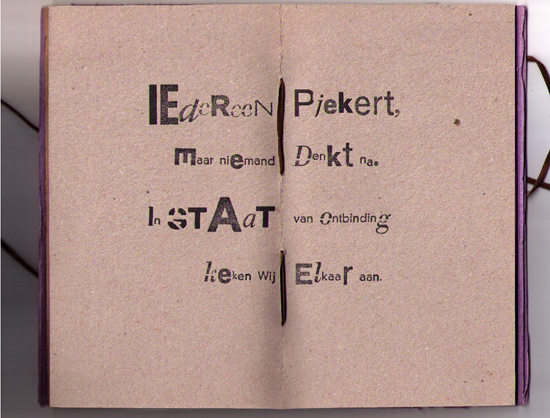 IEdeReeN Piekert,
maar niemand Denkt na.
In STAaT van Ontbinding
keken Wij Elkaar aan.